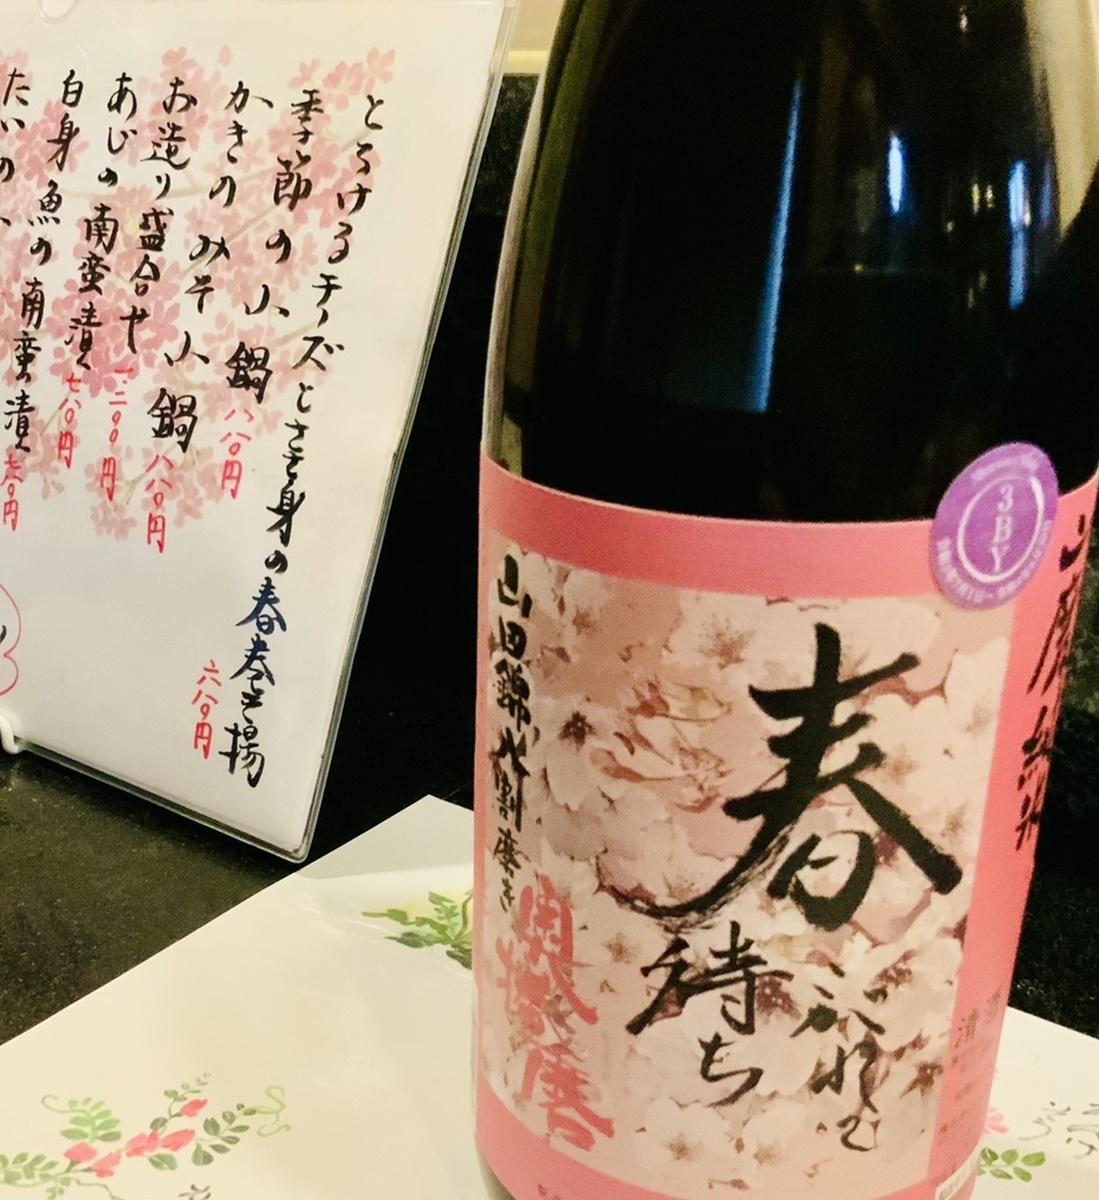 とろけるチーズとささ身の春巻き揚
六八〇円
季節の小鍋
八八〇円
かきのみそ小鍋
八八〇円
お造り盛合せ
あじの南蛮漬
七八〇円
白身魚の南蛮漬
七八〇円
3BY
山廃純米
春
待ち
山田錦八割磨き
奥播磨
清酒